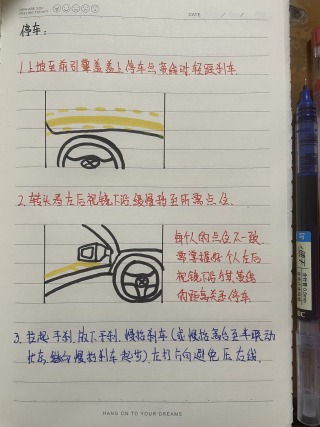 DATE
停车:
1.上坡至前引擎盖盖上停车点黄线时轻踩刹车.
2.转头看左后视镜下沿,缓慢抬至所需点位.
每个人的点位不一致.
需掌握好个人左后
视镜下沿与黄线
的距离关系停车
3.拉起手刹.放下手刹.慢抬刹车(或慢抬离合至半联动
状态,继续慢抬刹车起步).左打方向避免压右线.
HANG ON TO YOUR DREAMS